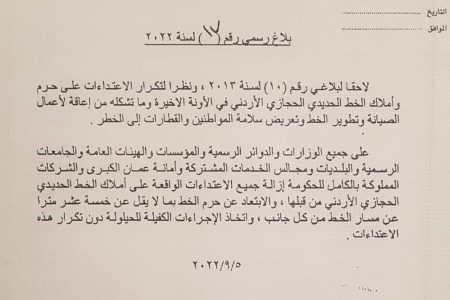 التاريخ
الموافق
بلاغ رسمي رقم (١٧) لسنة ٢٠٢٢
لاحقا لبلاغي رقم (١٠) لسنة ٢٠١٣ ، ونظرا لتكرار الاعتداءات على حرم
وأملاك الخط الحديدي الحجازي الأردني في الآونة الاخيرة وما تشكله من إعاقة لأعمال
الصيانة وتطوير الخط وتعريض سلامة المواطنين والقطارات إلى الخطر .
على جميع الوزارات والدوائر الرسمية والمؤسسات والهيئات العامة والجامعات
الرسمية والبلديات ومجالس الخدمات المشتركة وأمانة عمان الكبرى والشركات
المملوكة بالكامل للحكومة إزالة جميع الاعتداءات الواقعة على أملاك الخط الحديدي
الحجازي الأردني من قبلها ، والابتعاد عن حرم الخط بما لا يقل عن خمسة عشر مترا
عن مسار الخط من كل جانب ، واتخاذ الإجراءات الكفيلة للحيلولة دون تكرار هذه
الاعتداءات .
٢٠٢٢/٩/٥